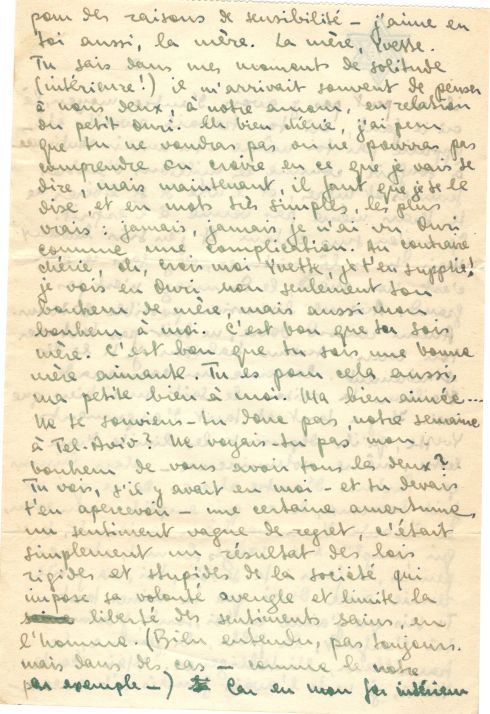 pour des raisons de sensibilité – j'aime en
toi aussi, la mère. La mère, Yvette.
Tu sais dans mes moments de solitude
(intérieure!) il m'arrivait souvent de penser
à nous deux, à notre amour, en relation
du petit Ouri. Eh bien chérie, j'ai peur
que tu ne voudras pas ou ne pourras pas
comprendre ou croire en ce que je vais te
dire, mais maintenant, il faut que je te le
dise, et en mots très simples, les plus
vrais : jamais, jamais je n'ai vu Ouri
comme une complication. Au contraire
chérie, oh, crois moi Yvette, je t'en supplie!
je vois en Ouri non seulement ton
bonheur de mère, mais aussi mon
bonheur à moi. C'est bon que tu sois
mère. C'est bon que tu sois une bonne
mère aimante. Tu es pour cela aussi,
ma petite bien à moi. Ma bien aimée...
Ne te souviens-tu donc pas notre semaine
à Tel-Aviv? Ne voyais-tu pas mon
bonheur de vous avoir tous les deux?
Tu vois, s'il y avait en moi – et tu devais
t'en apercevoir – une certaine amertume,
un sentiment vague de regret, c'était
simplement un résultat des lois
rigides et stupides de la société qui
impose sa volonté aveugle et limite la
liberté des sentiments sains, en
l'homme. (Bien entendu, pas toujours.
mais dans des cas – comme le notre
par exemple –) Car en mon for intérieur